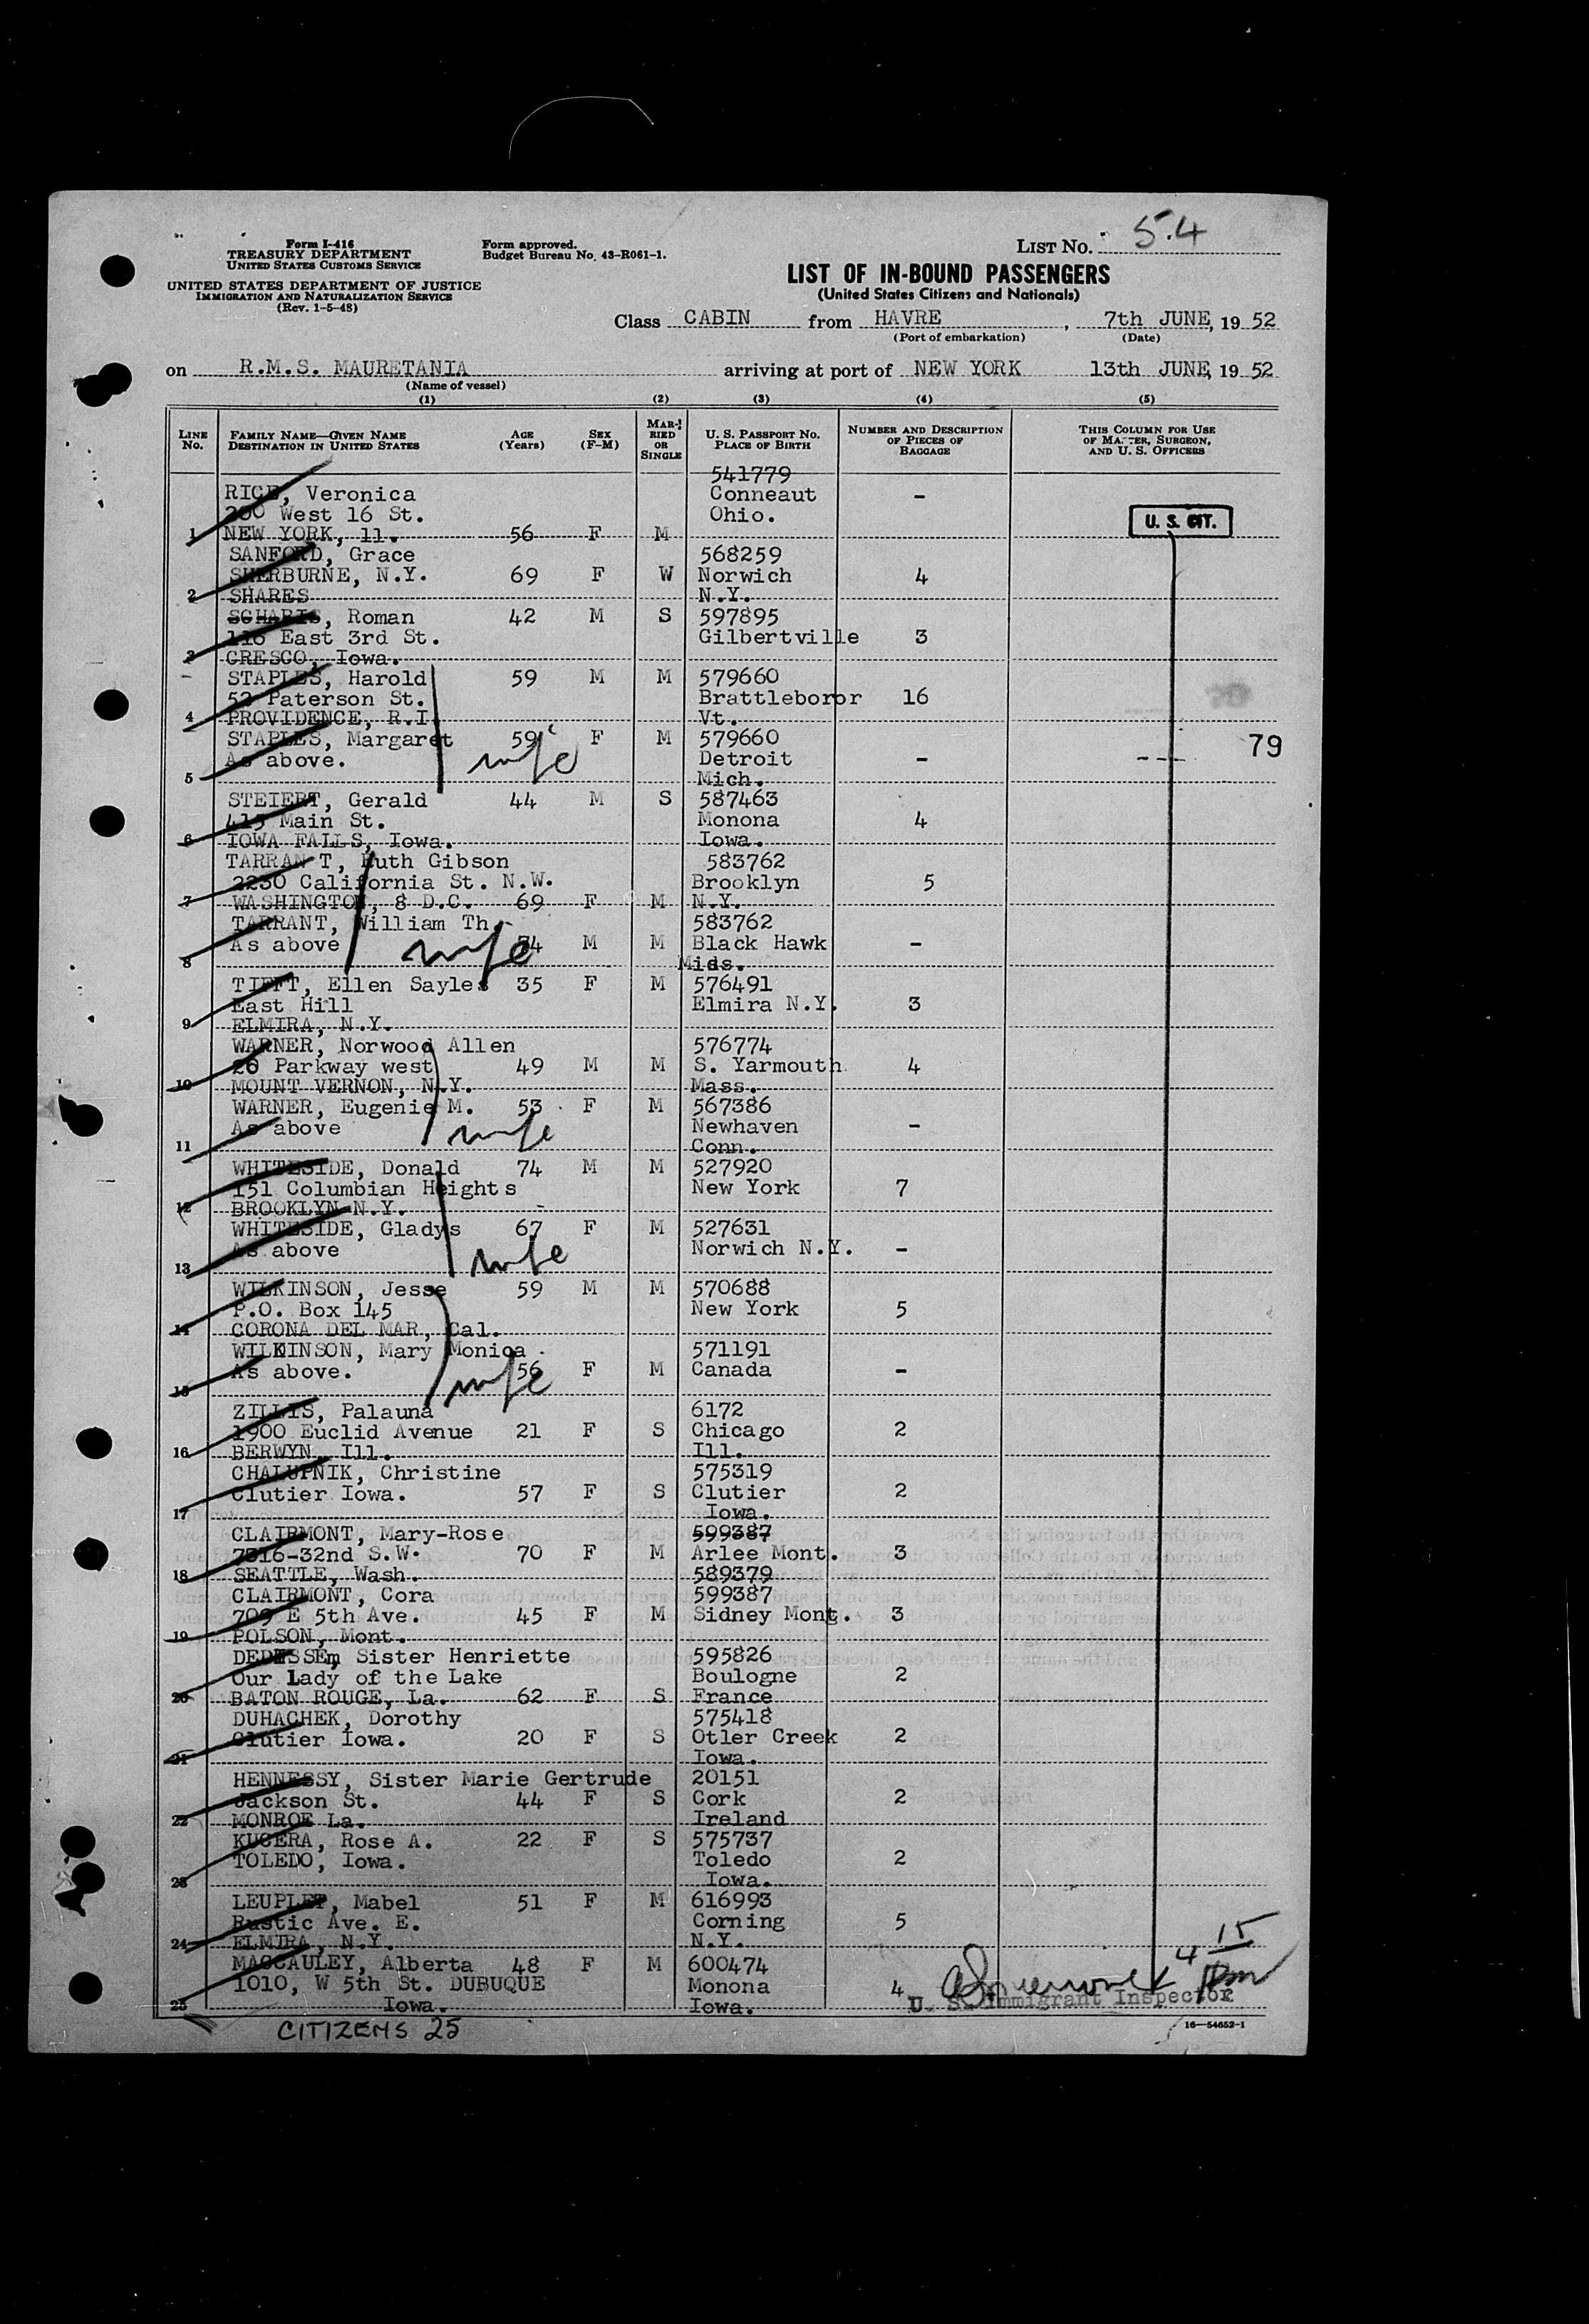 Form I-416
TREASURY DEPARTMENT
UNITED STATES CUSTOMS SERVICE
UNITED STATES DEPARTMENT OF JUSTICE
IMMIGRATION AND NATURALIZATION SERVICE
(Rev. 1-5-48)
Form approved.
Budget Bureau No. 43-R061-1.
LIST No. 54
LIST OF IN-BOUND PASSENGERS
(United States Citizens and Nationals)
Class CABIN from HAVRE, 7th JUNE, 19 52
(Port of embarkation) (Date)
on R.M.S. MAURETANIA arriving at port of NEW YORK 13th JUNE, 19 52
(Name of vessel)
(1) (2) (3) (4) (5)
LINE No. FAMILY NAME—GIVEN NAME DESTINATION IN UNITED STATES AGE (Years) SEX (F-M) MARRIED OR SINGLE U. S. PASSPORT No. PLACE OF BIRTH NUMBER AND DESCRIPTION OF PIECES OF BAGGAGE THIS COLUMN FOR USE OF MASTER, SURGEON, AND U. S. OFFICERS
541779
RICE, Veronica Conneaut -
200 West 16 St. Ohio. U. S. CIT.
1 NEW YORK, 11. 56 F M
SANFORD, Grace 568259
SHERBURNE, N.Y. 69 F W Norwich 4
2 SHARES N.Y.
SCHARIS, Roman 42 M S 597895
116 East 3rd St. Gilbertville 3
3 CRESCO, Iowa.
STAPLES, Harold 59 M M 579660
52 Paterson St. Brattleboror 16
4 PROVIDENCE, R.I. Vt.
STAPLES, Margaret 59 F M 579660 79
As above. wife Detroit -
5 Mich.
STEIERT, Gerald 44 M S 587463
415 Main St. Monona 4
6 IOWA FALLS, Iowa. Iowa.
TARRAN T, Ruth Gibson 583762
2230 California St. N.W. Brooklyn 5
7 WASHINGTON, 8 D.C. 69 F M N.Y.
TARRANT, William Th. 583762
As above wife 74 M M Black Hawk -
8 Mids.
TIFFT, Ellen Sayles 35 F M 576491
East Hill Elmira N.Y. 3
9 ELMIRA, N.Y.
WARNER, Norwood Allen 576774
26 Parkway west 49 M M S. Yarmouth 4
10 MOUNT VERNON, N.Y. Mass.
WARNER, Eugenie M. 53 F M 567386
As above wife Newhaven -
11 Conn.
WHITESIDE, Donald 74 M M 527920
151 Columbian Heights New York 7
12 BROOKLYN N.Y.
WHITESIDE, Gladys 67 F M 527631
As above wife Norwich N.Y. -
13
WILKINSON, Jesse 59 M M 570688
P.O. Box 145 New York 5
14 CORONA DEL MAR, Cal.
WILKINSON, Mary Monica 571191
As above. wife 56 F M Canada -
15
ZILLIS, Palauna 6172
1900 Euclid Avenue 21 F S Chicago 2
16 BERWYN, Ill. Ill.
CHALUPNIK, Christine 575319
Clutier Iowa. 57 F S Clutier 2
17 Iowa.
CLAIRMONT, Mary-Rose 599387
7316-32nd S.W. 70 F M Arlee Mont. 3
18 SEATTLE, Wash. 589379
CLAIRMONT, Cora 599387
709 E 5th Ave. 45 F M Sidney Mont. 3
19 POLSON, Mont.
Sister Henriette 595826
Our Lady of the Lake Boulogne 2
20 BATON ROUGE, La. 62 F S France
DUHACHEK, Dorothy 575418
Clutier Iowa. 20 F S Otler Creek 2
21 Iowa.
HENNESSY, Sister Marie Gertrude 20151
Jackson St. 44 F S Cork 2
22 MONROE La. Ireland
KUCERA, Rose A. 22 F S 575737
TOLEDO, Iowa. Toledo 2
23 Iowa.
LEUPLET, Mabel 51 F M 616993
Rustic Ave. E. Corning 5
24 ELMIRA, N.Y. N.Y.
MACCAULEY, Alberta 48 F M 600474
1010, W 5th St. DUBUQUE Monona 4
25 Iowa. Iowa. U. S. Immigrant Inspector
4 15 Pm
CITIZENS 25
16—54652-1